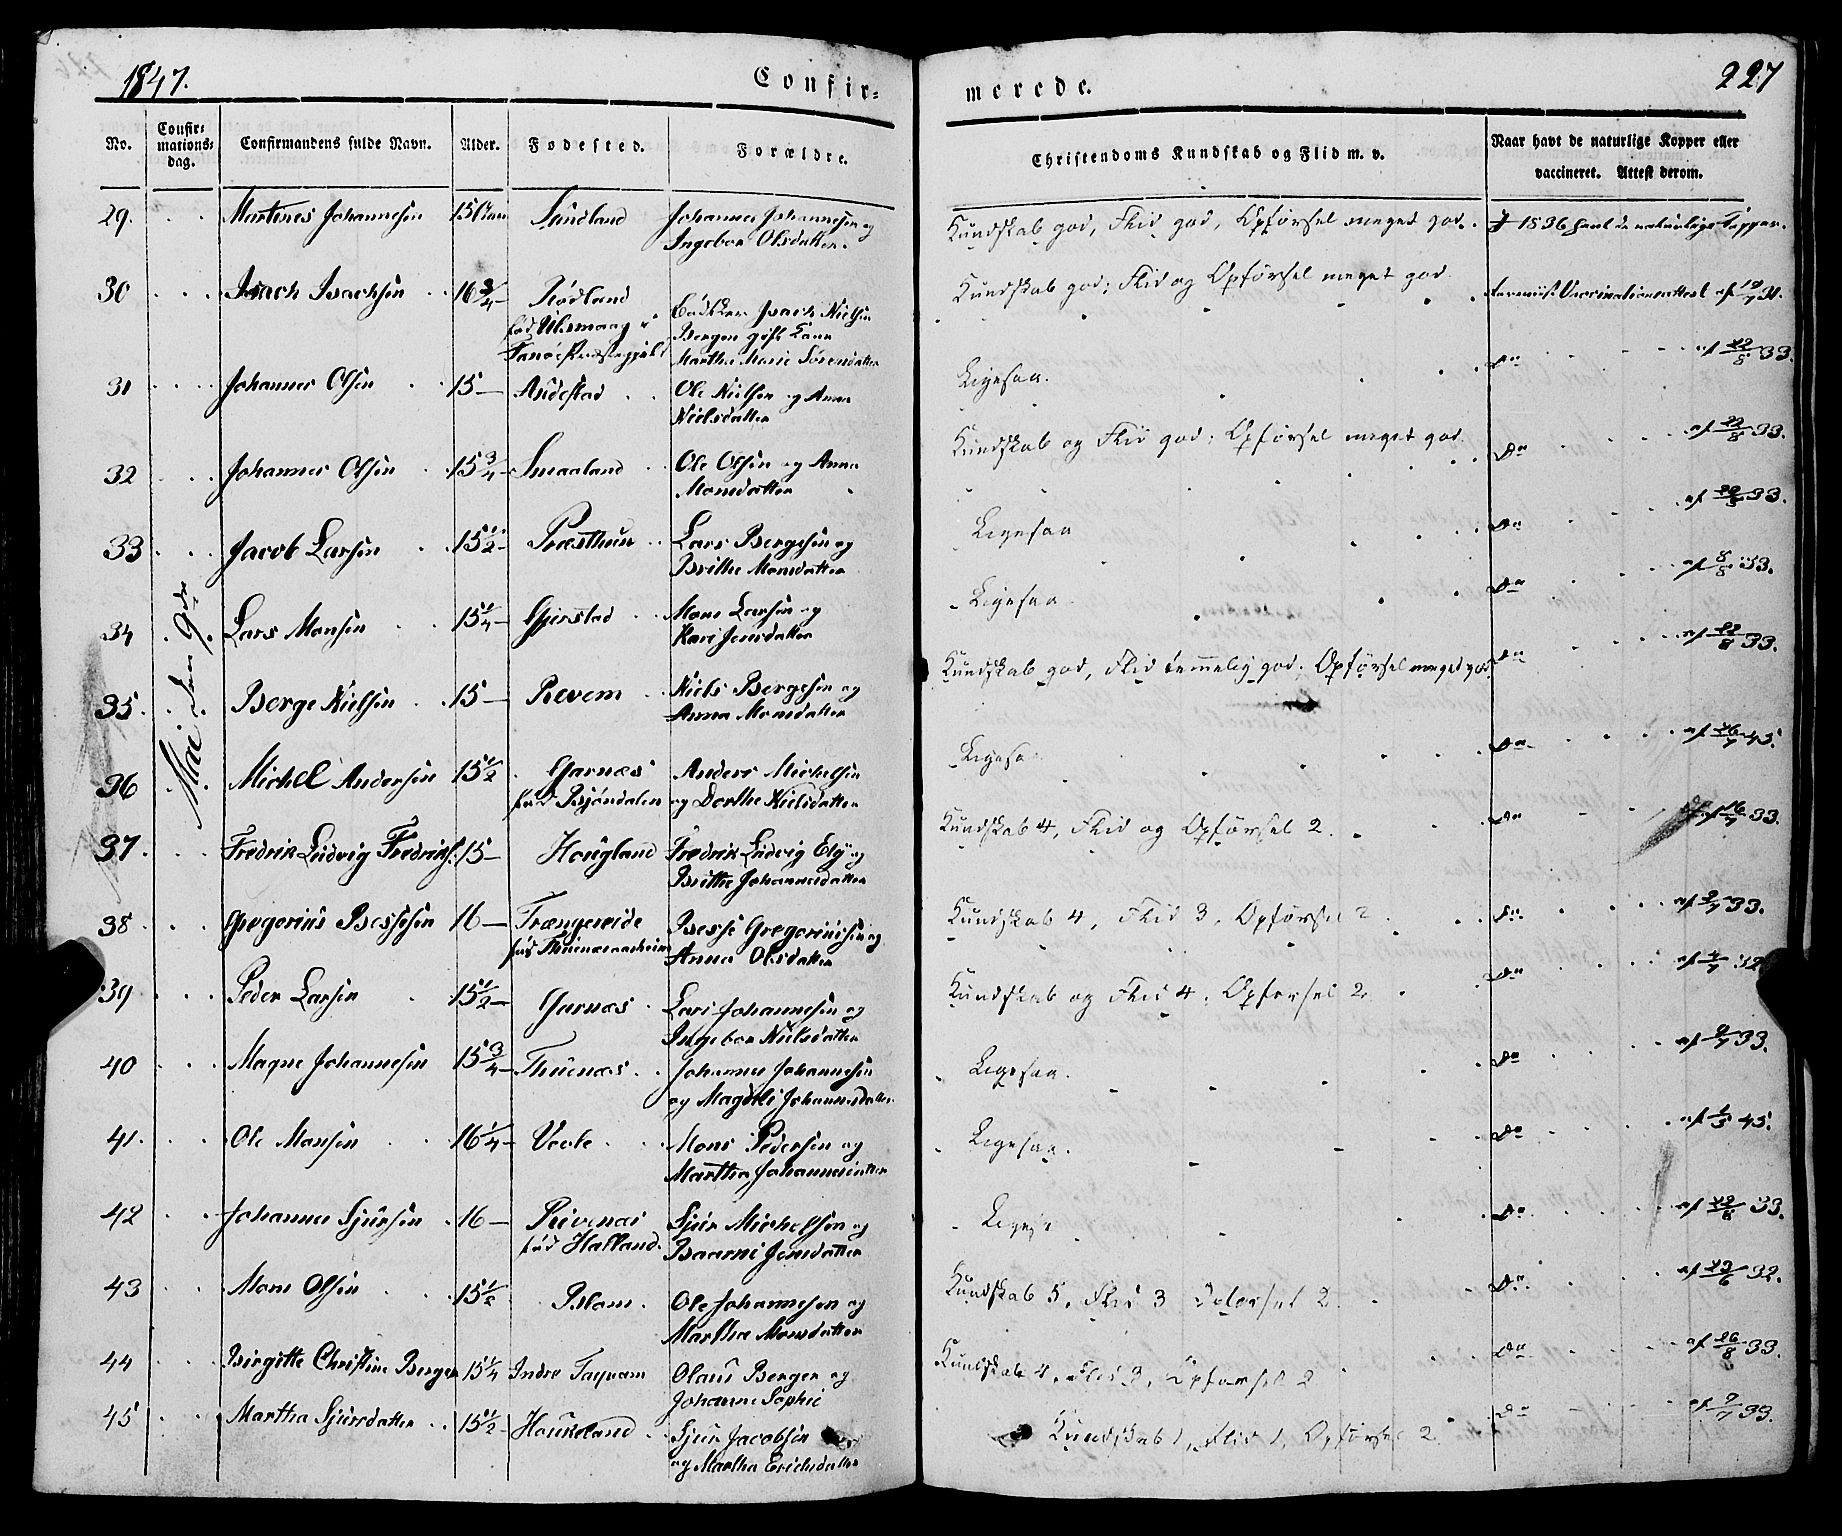 1847.
Confir=
merede.
227
No.
Confir=
mations=
dag.
Confirmandens fulde Navn.
Alder.
Fødested.
Forældre.
Christendoms Kundskab og Flid m. v.
Naar havt de naturlige Kopper eller
vaccineret. Attest derom.
Mai den 9de
29. Johannesen Sundland Johannes Johannesen og
Ingebor Olsdatter.
Kundskab god, Flid god, Opførsel meget god. 1836 havt de naturlige Kopper.
30 Isach Isachsen 16 3/4 Rødland
Isach Nielsen
Bergen gift
Martha Marie Sørensdatter
Kundskab god; Flid og Opførsel meget god. Vaccinationsattest af
31 Johannes Olsen 15 Andestad Ole Nielsen og Anna
Nielsdatter
Ligesaa. Do af 12/8 33.
32 Johannes Olsen 15 3/4 Smaaland Ole Olsen og Anna
Monsdatter
Kundskab og Flid god; Opførsel meget god. Do af 22/8 33.
33 Jacob Larsen 15 1/2 Præsthun Lars Bergesen og
Brithe Monsdatter
Ligesaa Do af 33.
34 Lars Monsen 15 1/4 Gjerstad Mons Larsen og
Kari Jonsdatter
Ligesaa. Do af 8/8 33.
35 Berge Nielsen 15 Revem Niels Bergesen og
Anna Monsdatter
Kundskab god, Flid temmelig god; Opførsel meget god. Do af 33.
36 Michel Andersen 15 1/2 Garnæs Anders Michelsen
fød Bjøndalen og Dorthe Nielsdatter
Ligesaa Do af 45.
37 Fredrik Ludvig Fredriks. 15 Hougland Fredrik Ludvig og
Brithe Johannesdatter
Kundskab 4, Flid og Opførsel 2. Do af 16/7 33.
38 Gregorius Bessesen 16 Trængereide Besse Gregoriusen og
fød Anna Olsdatter
Kundskab 4, Flid 3, Opførsel 2. Do af 33.
39 Peder Larsen 15 1/2 Garnæs Lars Johannesen og
Ingebor Nielsdatter
Kundskab og Flid 4, Opførsel 2. Do af 32
40 Magne Johannesen 15 3/4 Thuenæs Johannes Johannesen
og Magdeli Johannesdatter
Ligesaa. Do af 33.
41. Ole Monsen 16 1/4 Mons Pedersen og
Martha
Ligesaa. Do af 45.
42 Johannes Sjursen 16 Rivenæs Sjur Michelsen og
fød Halland. Jonsdatter
Ligesa Do af 12/8 33.
43 Mons Olsen 15 1/2 Blom Ole Johannesen og
Martha Monsdatter
Kundskab 5, Flid 3 Opførsel 2 Do af 32.
44 Birgitte Christine Berger 15 1/4 Indre Olaus Berger og
Johanne Sophie
Kundskab 4, Flid 3, Opførsel 2 Do af 26/8 33.
45 Martha Sjursdatter 15 1/2 Houkeland Sjur Jacobsen
og Martha Erichsdatter
Kundskab 1, Flid 1, Opførsel 2. Do af 9/7 33.